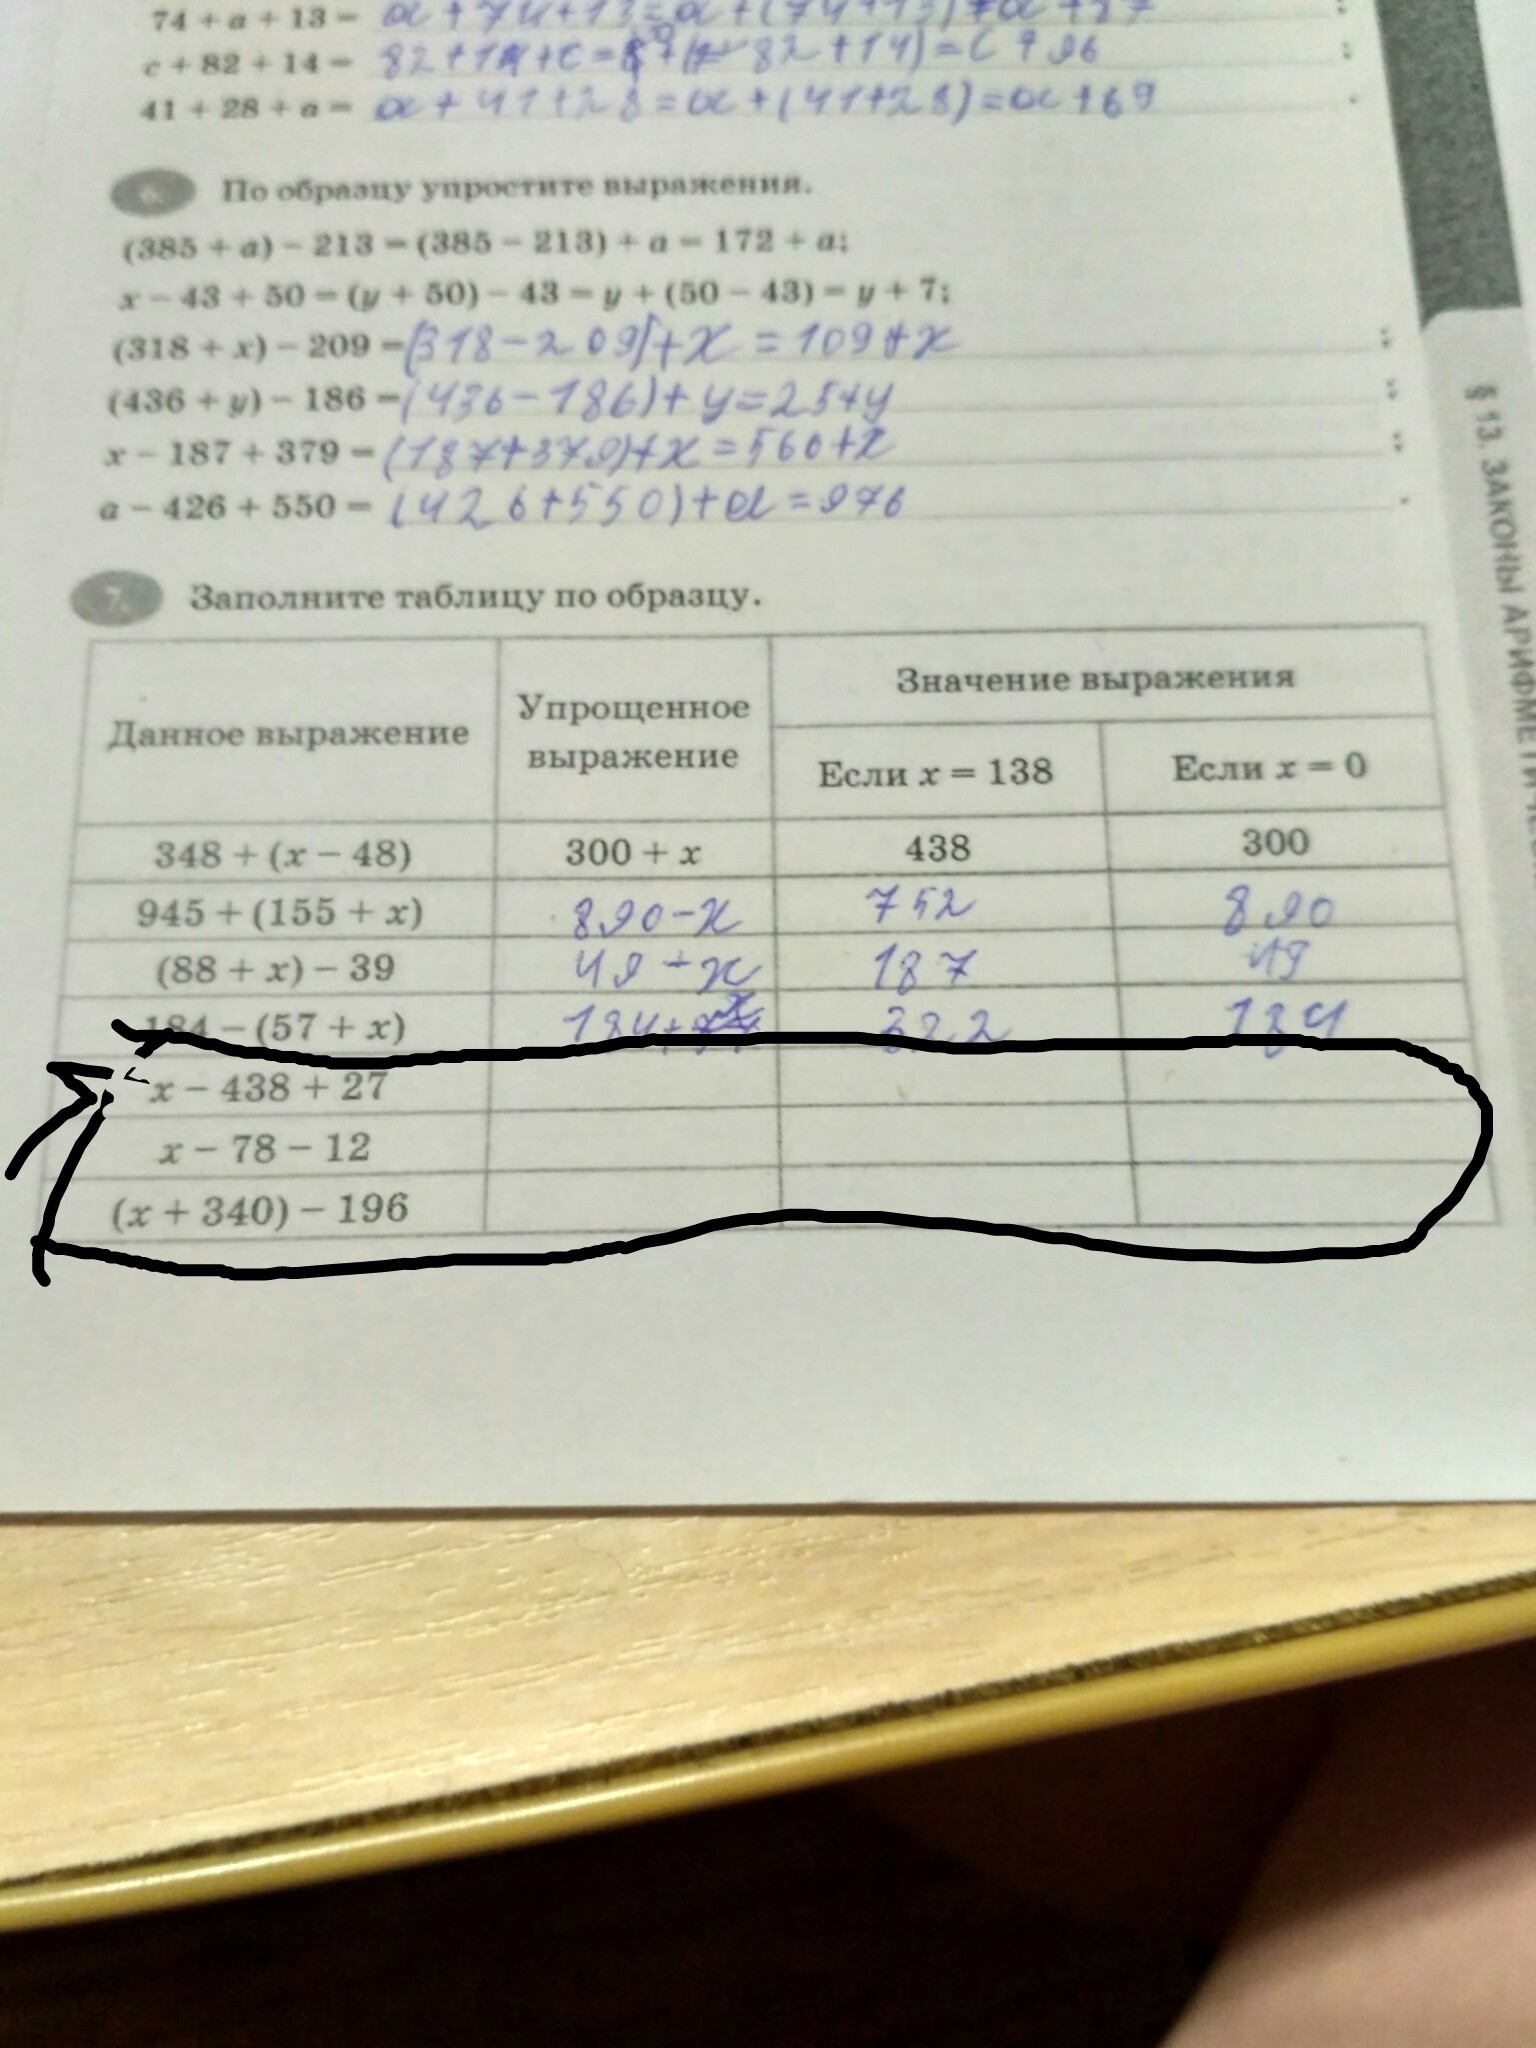 74 + a + 13 = a+74+13=a+(74+13)=a+87
c + 82 + 14 = 82+14+c= 82+14)=c+96 ;
41 + 28 + a = a+41+28=a+(41+28)=a+69 .
6. По образцу упростите выражения.
(385 + a) − 213 = (385 − 213) + a = 172 + a;
x − 43 + 50 = (y + 50) − 43 = y + (50 − 43) = y + 7;
(318 + x) − 209 = (318−209)+x=109+x ;
(436 + y) − 186 = (436−186)+y=25+y ;
x − 187 + 379 = (187+379)+x=560+x ;
a − 426 + 550 = (426+550)+a=976 .
7. Заполните таблицу по образцу.
Данное выражение Упрощенное выражение Значение выражения
Если x = 138 Если x = 0
348 + (x − 48) 300 + x 438 300
945 + (155 + x) 890−x 752 890
(88 + x) − 39 49+x 187 49
184 − (57 + x) 184+ 322 184
x − 438 + 27
x − 78 − 12
(x + 340) − 196
§ 13. ЗАКОНЫ